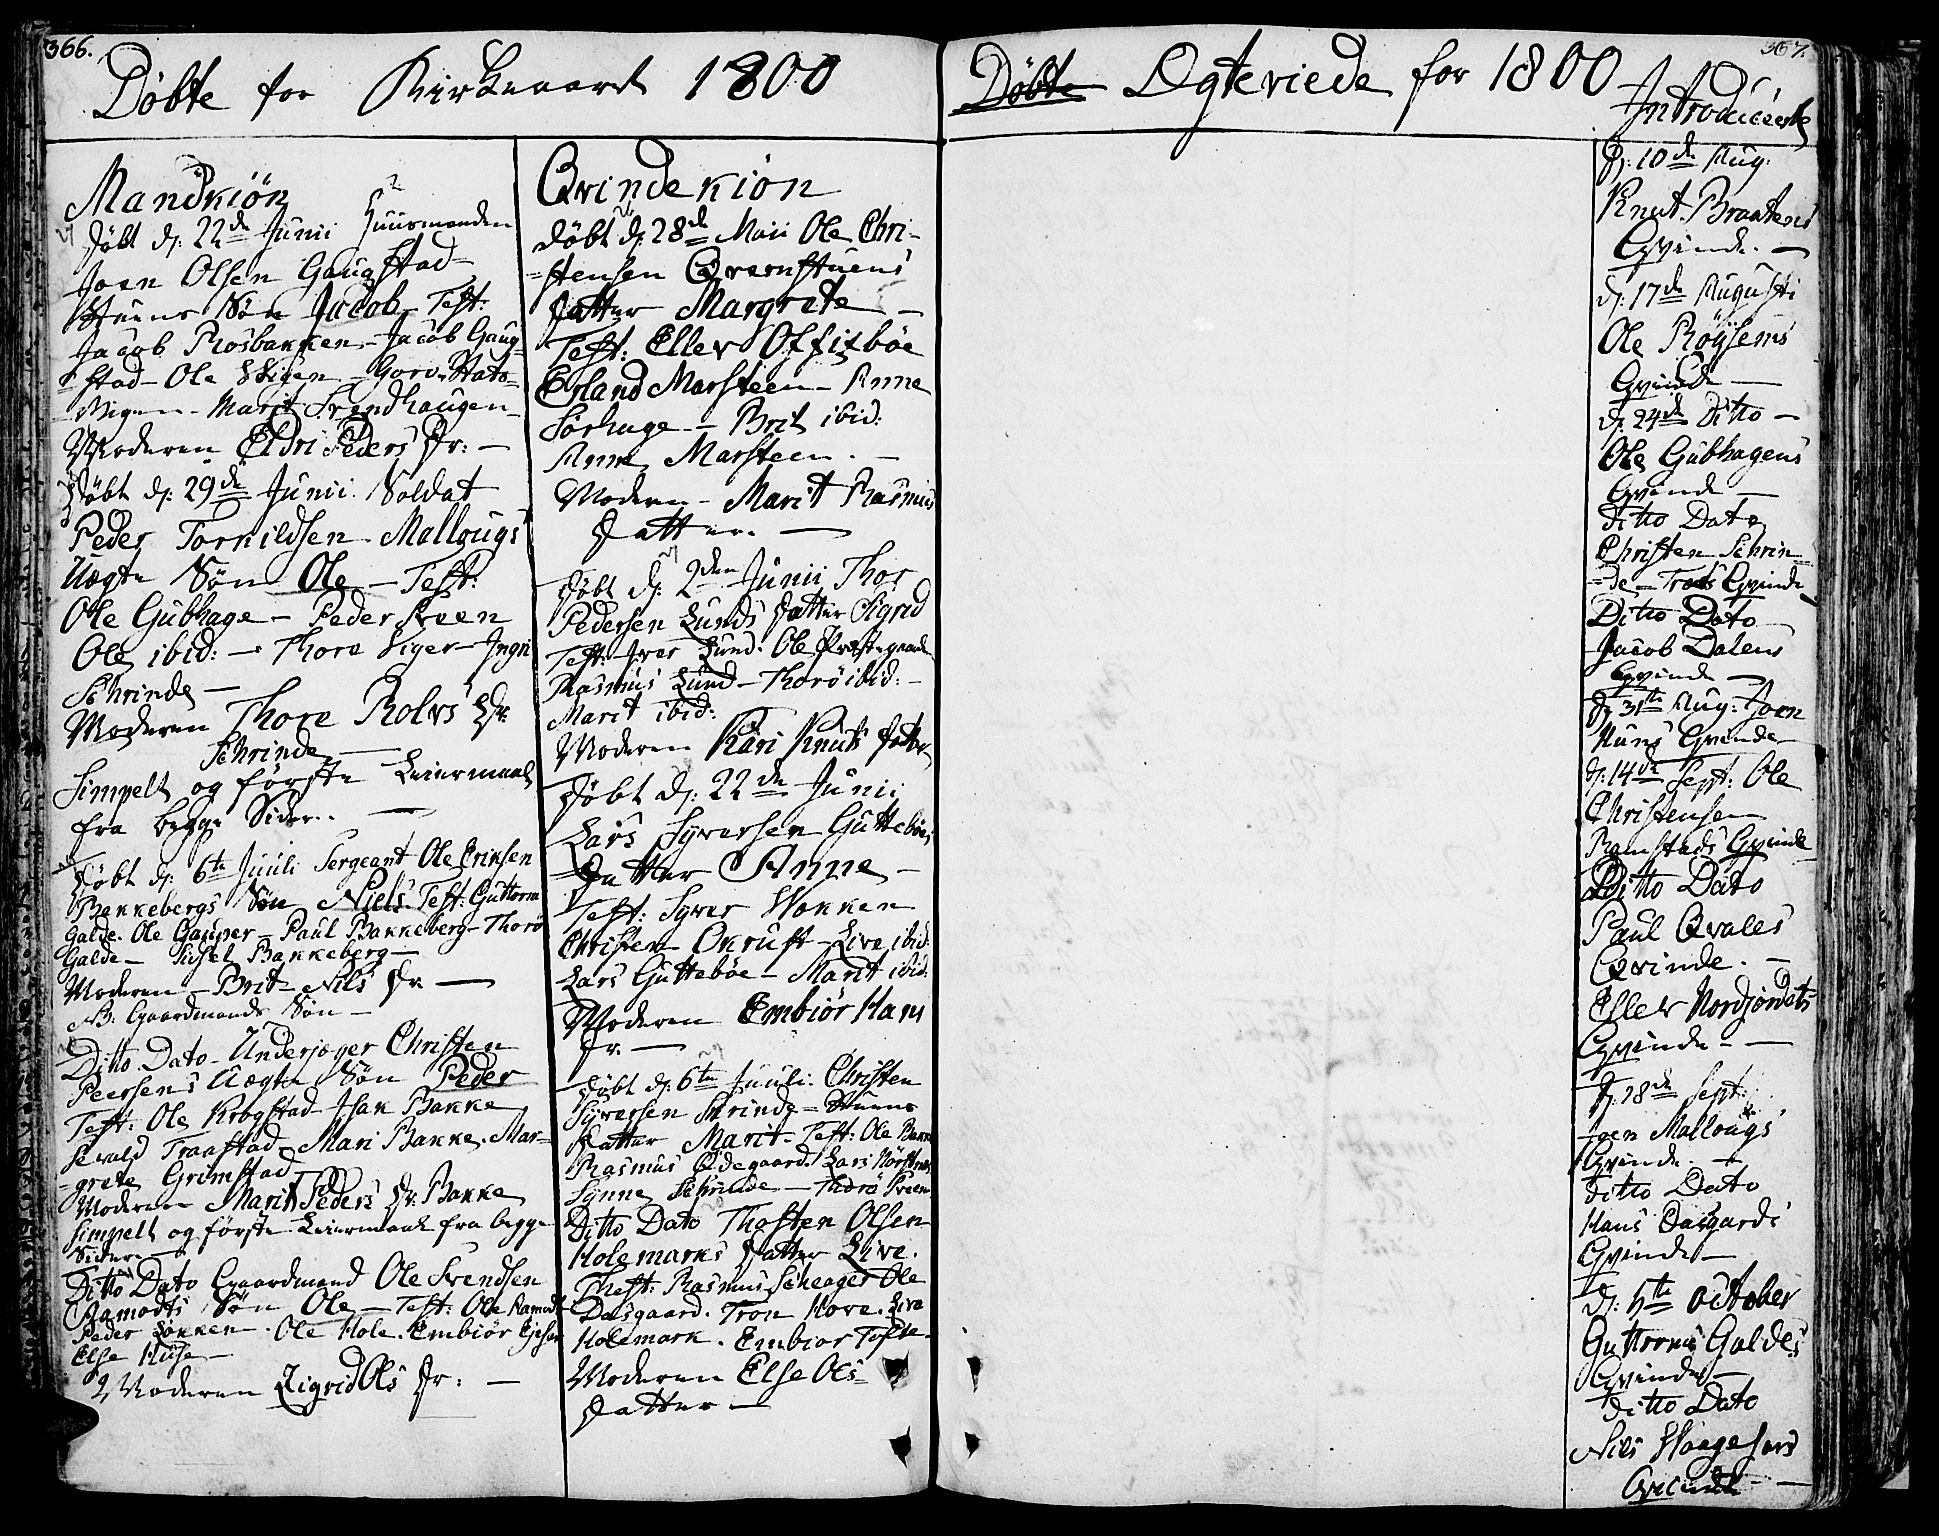 366.
Döbte for Kirkeaaret 1800
Mandkiön
Döbt d: 22de Junii Huusmanden
Joen Olsen Gaugstad-
Stuens Sön Jacob- Test:
Jacob Rosbakken- Jacob Gaug-
stad- Ole Skigen- Gorv: Stats-
Vigen- Marit Svendhaugen
Moderen Eldri Peders Dr: -
Döbt d: 29de Junii Soldat
Peder Tornildsen Mallougs
Uægte Sön Ole- Test:
Ole Gubhage- Peder Sveen
Ole ibid:- Thore Siger- Ingri
Schrinde-
Moderen Thore Rolvs Dr.
Schrinde-
Simpelt og förste Leiermaal
fra begge Sider.-
Döbt d: 6te Juuli Sergeant Ole Eriksen
Bakkebergs Sön Niels Test: Guttorm
Galde. Ole Gauper- Paul Bakkeberg- Thorö
Galde- Sidsel Bakkeberg-
Moderen- Brit- Nils Dr.-
NB: Gaardmands Sön-
Ditto Dato- Underjæger Christen
Peersens Uægte Sön Peder
Test: Ole Krogstad- Isak Bakke
Sevald Traastad- Mari Bakke. Mar-
-grete Grimstad
Moderen Marit Peders Dr. Bakke
Simpelt og förste Leiermaal fra begge
Sider-
Ditto Dato Gaardmand Ole Svendsen
Aamodts Sön Ole- Test: Ole Aamodt
Peder Lökken. Ole Hole. Embiör
Else Huse-
Moderen Sigrid Ols Dr: -
Qvindekiön
Döbt d: 28de Maii Ole Chri-
-stensen Qvernstuens
Datter Margrete-
Test: Ellev Offigböe
Erland Marsteen- Anne
Sörhage- Brit ibid:
Anne Marsteen.-
Moderen- Marit Rasmus
Datter.-
Döbt d: 2den Junii Thor
Pedersen Lunds Datter Sigrid
Test: Iver Lund. Ole Præstegaard.
Rasmus Lund- Thorö ibid:-
Marit ibid:
Moderen Kari Knuts Datter
Döbt d: 22de Junii
Lars Syversen Gutteböes
Datter Anne-
Test: Syver Stokken
Christen Okrust- Live ibid:
Lars Guttebøe- Marit ibid:
Moderen Embiör Hans
Dr.-
Döbt d: 6te Juuli: Christen
Syversen Skrinde- Stuens
Datter Marit- Test: Ole Bakke
Rasmus Ödegaard. Lars
Synne Schrinde- Thorö Sveen
Ditto Dato Thosten Olsen
Holemarks Datter Live.
Thest: Rasmus Scheager Ole
Dasgaard. Tron Hove. Live
Holemark. Embiör Tofte-
Moderen Else Ols-
Datter-
367.
Döbte Ægteviede for 1800
Introducerte
d: 10de Aug.
Knut Braatens
Qvinde.-
d: 17de Augusti
Ole Röysems
Qvinde-
d: 24de Ditto-
Ole Gubhagens
Qvinde-
Ditto Dato
Christen Schrin-
-de- Træets Qvinde
Ditto Dato
Jacob Dalens
Qvinde-
d: 31te Aug: Joen
Huns Qvinde-
d: 14de Sept: Ole
Christensen
Ramstads Qvinde
Ditto Dato
Paul Qvales
Qvinde.-
Ellev Nordjordets
Qvinde-
d: 28de Sept:
Joen Mallougs
Qvinde.-
Ditto Dato
Hans Dasgards
Qvinde-
d: 5te October
Guttorms Galdes
Qvinde-
Ditto Dato
Nils
Qvinde-